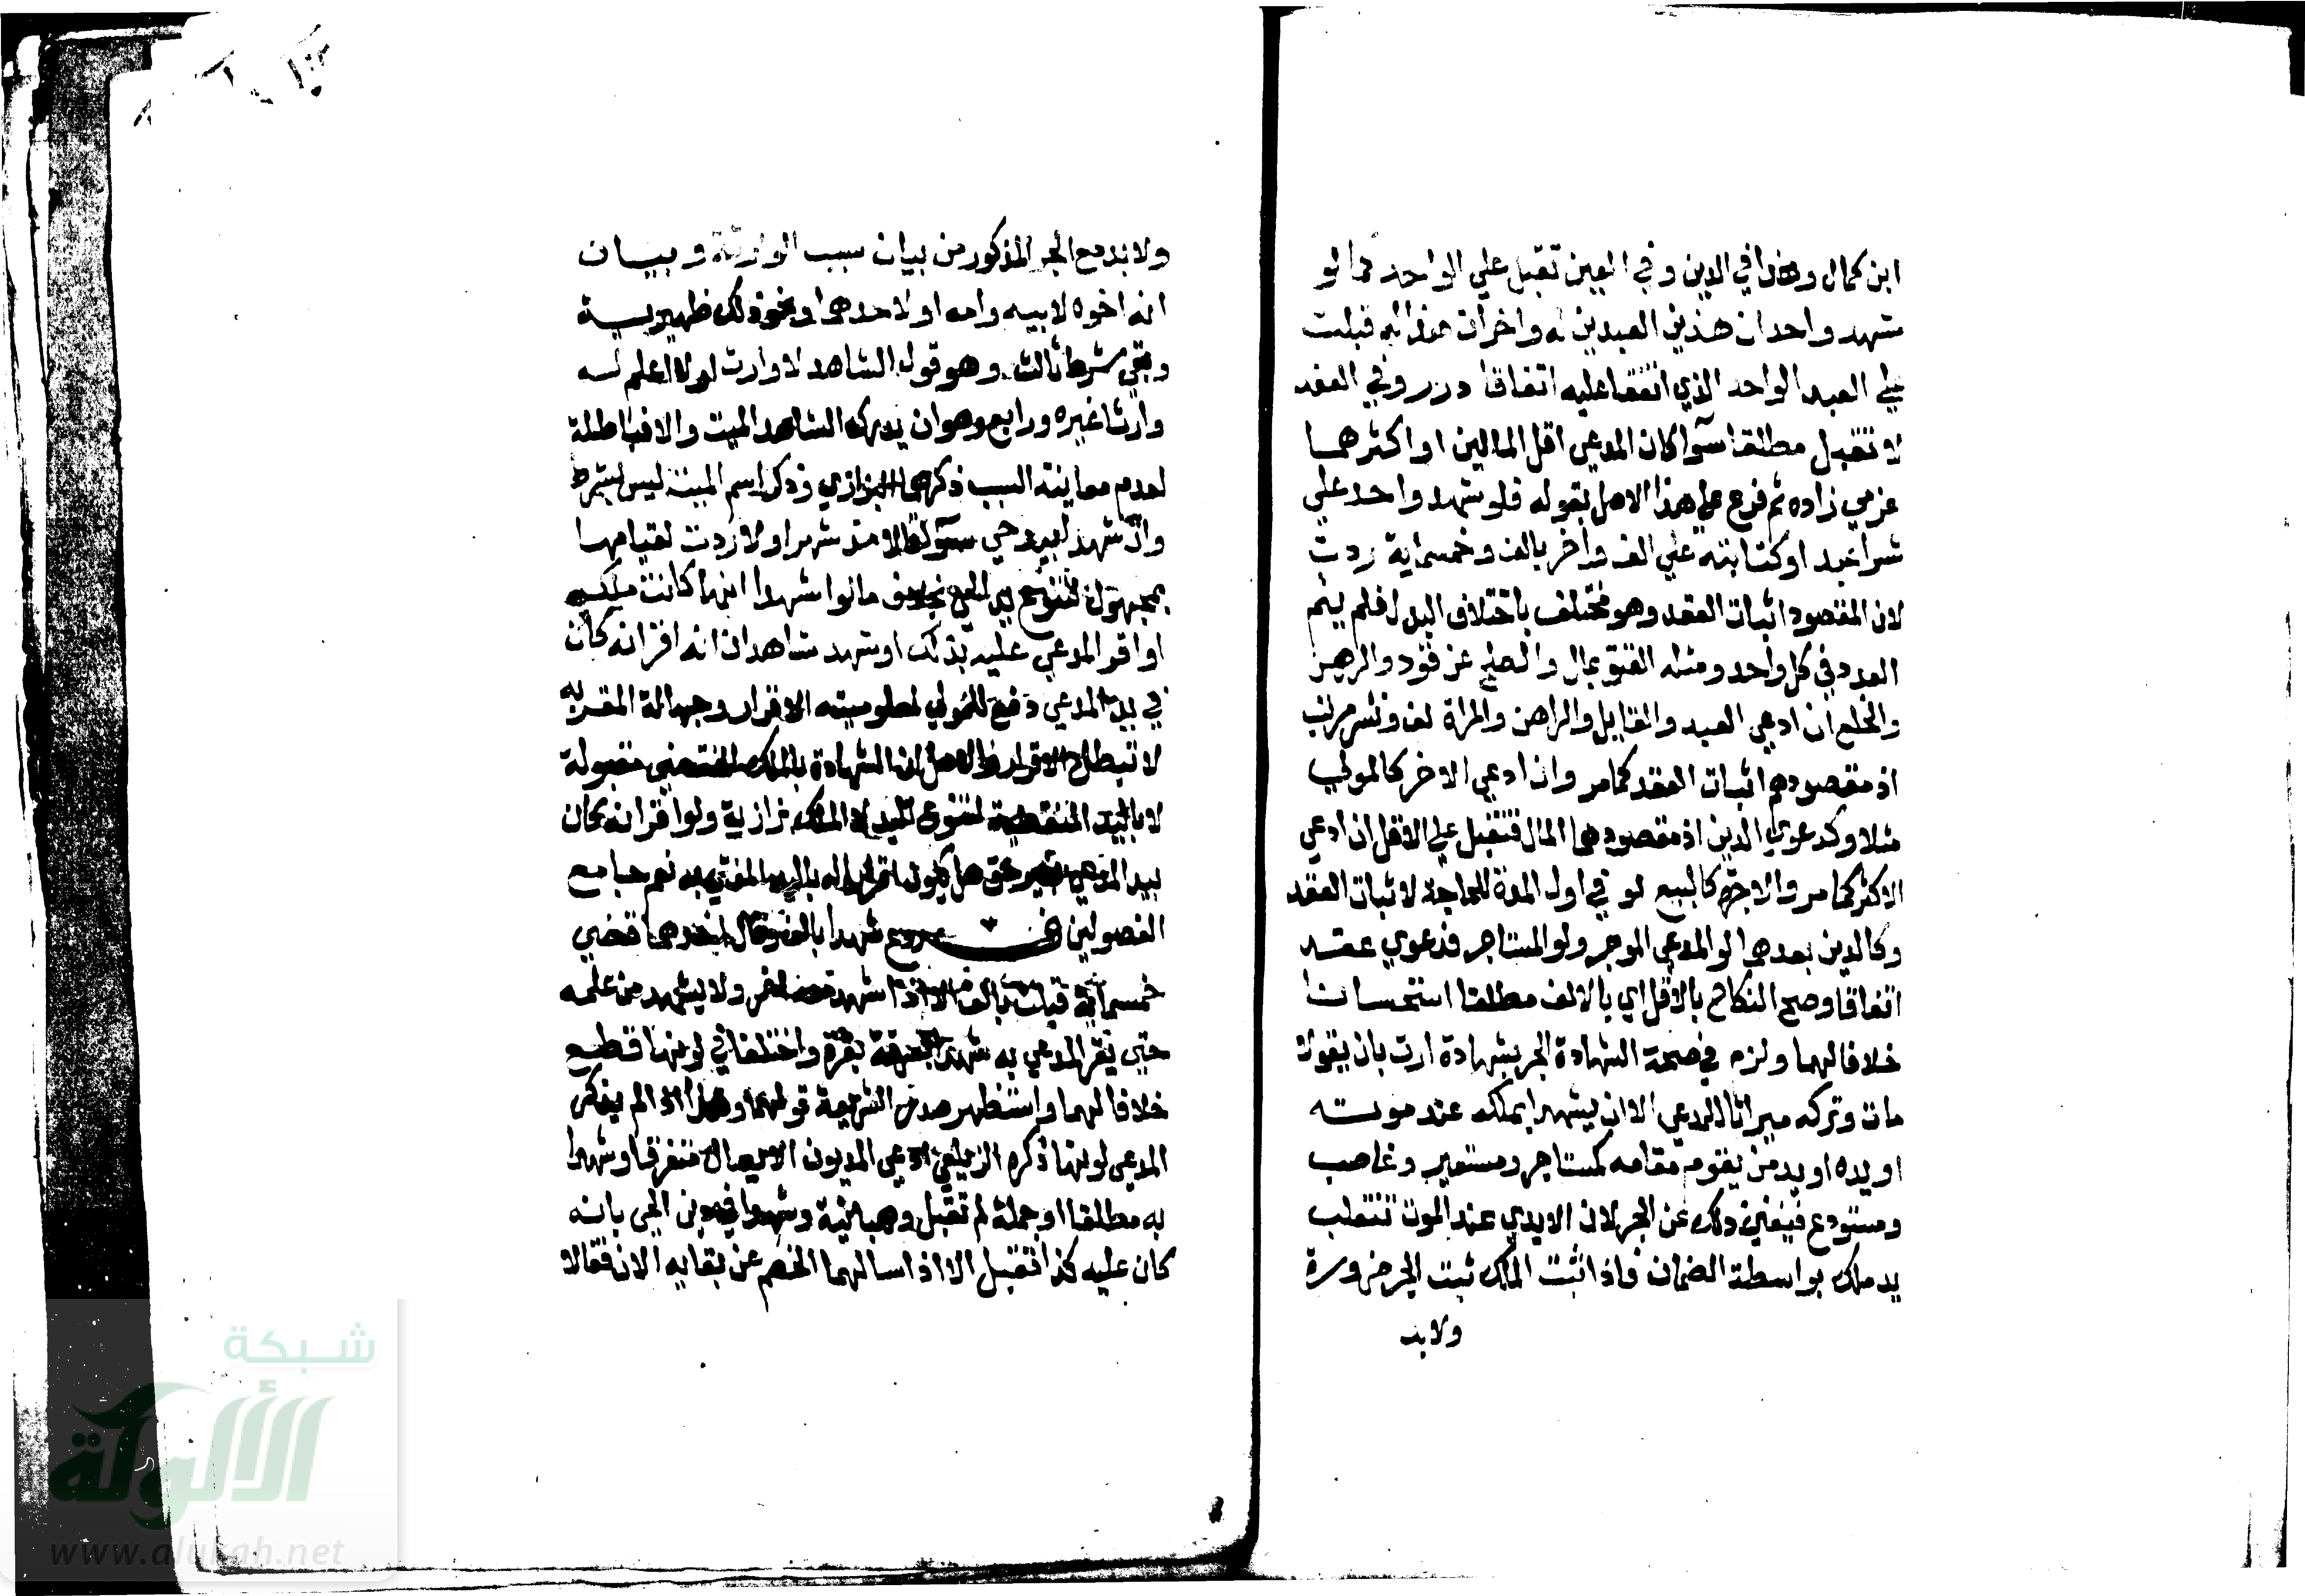 ابن كمال وهذا في الدين وفي العين تقبل علي الواحد كما لو
شهد واحد ان هذين العبدين له واخر ان هذا له قبلت
علي العبد الواحد الذي اتفقا عليه اتفاقا درر وفي العقد
لا تقبل مطلقا سوا كان المدعي اقل المالين او اكثرهما
عزمي زاده ثم فرع علي هذا الاصل بقوله فلو شهد واحد علي
شرا عبد او كتابته علي الف واخر بالف وخمسماية ردت
لان المقصود اثبات العقد وهو مختلف باختلاف البدل فلم يتم
العدد في كل واحد ومثله العتق بمال والصلح عن قود والرهن
والخلع ان ادعي العبد والقاتل والراهن والمراة لف ونشر مرتب
اذ مقصودهم اثبات العقد كما مر وان ادعي الاخر كالمولي
مثلا وكدعوي الدين اذ مقصودهما المال فتقبل علي الاقل ان ادعي
الاكثر كما مر والاجرة كالبيع لو في اول المدة للحاجة لاثبات العقد
وكالدين بعدها لو المدعي الموجر ولو المستاجر فدعوي عقد
اتفاقا وصح النكاح بالاقل اي بالالف مطلقا استحسانا
خلافا لهما ولزم في صحة الشهادة الجر بشهادة ارث بان يقولا
مات وتركه ميراثا للمدعي الا ان يشهدا بملكه عند موته
او يده او يد من يقوم مقامه كمستاجر ومستعير وغاصب
ومستودع فيغني ذلك عن الجر لان الايدي عند الموت تنقلب
يد ملك بواسطة الضمان فاذا ثبت الملك ثبت الجر ضرورة
ولا بد
ولا بد مع الجر المذكور من بيان سبب الوراثة وبيان
انه اخوه لابيه وامه او لاحدهما ونحو ذلك ظهيرية
وبقي شرط ثالث وهو قول الشاهد لا وارث له او لا اعلم له
وارثا غيره ورابع وهو ان يدرك الشاهد الميت والا فباطلة
لعدم معاينة السبب ذكرهما البزازي وذكر اسم الميت ليس بشرط
وان شهدا بيد حي سوا قالا مذ شهر او لا ردت لقيامها
بمجهول لتنوع يد الحي بخلاف ما لو شهدا انها كانت ملكه
او اقر المدعي عليه بذلك او شهد شاهدان انه اقر انه كان
في يد المدعي دفع للمدعي لمعلومية الاقرار وجهالة المقر به
لا تبطل الاقرار والاصل ان الشهادة بالملك المنقضي مقبولة
لا باليد المنقضية لتنوع اليد لا الملك بزازية ولو اقر انه كان
بيد المدعي بغير حق هل يكون اقرارا له باليد المفتي به نعم جامع
الفصولين فروع شهدا بالف وقال احدهما قضي
خمسمائة قبلت بالف الا اذا شهد معه اخر ولا يشهد من علمه
حتي يقر المدعي به شهدا بسرقة بقرة واختلفا في لونها قطع
خلافا لهما واستظهر صدر الشريعة قولهما وهذا اذا لم يذكر
المدعي لونها ذكره الزيلعي ادعي المديون الايصال متفرقا وشهدا
به مطلقا او جملة لم تقبل وهبانية وشهدا في دين الحي بانه
كان عليه كذا تقبل الا اذا سالهما الخصم عن بقايه الان فقالا
شبكة
الألوكة
www.alukah.net